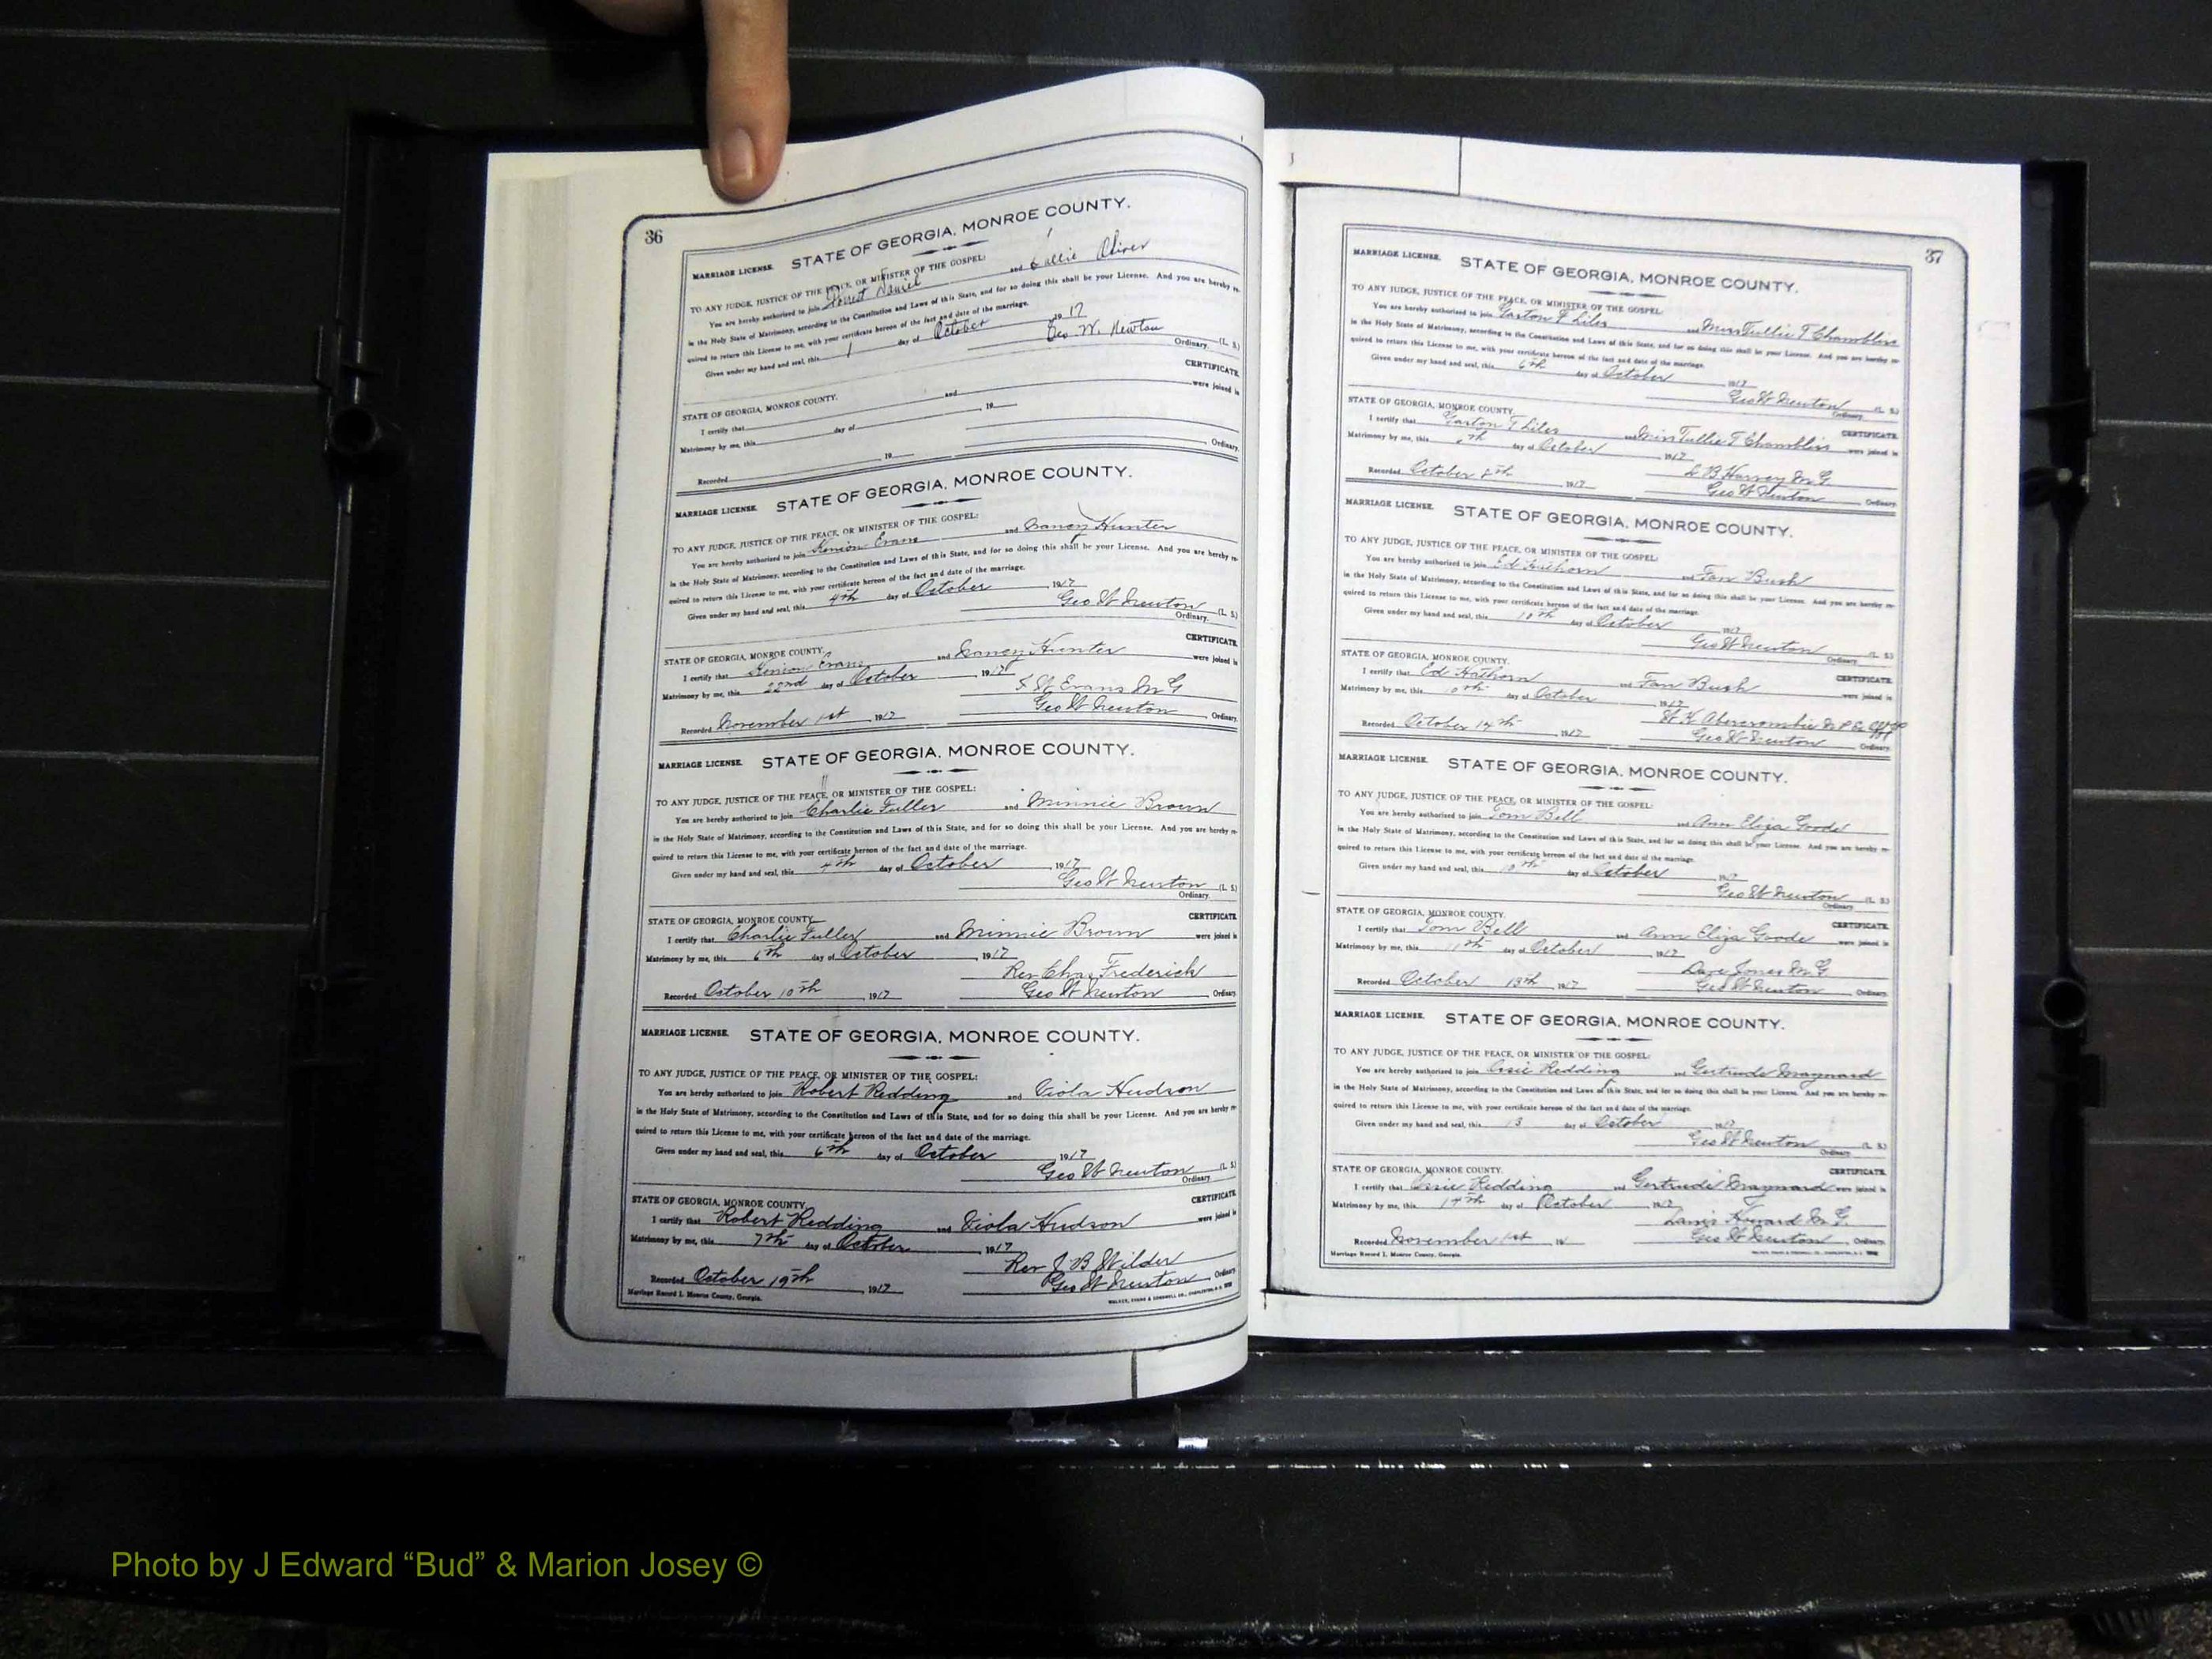 36
MARRIAGE LICENSE. STATE OF GEORGIA, MONROE COUNTY.
TO ANY JUDGE, JUSTICE OF THE PEACE, OR MINISTER OF THE GOSPEL:
You are hereby authorized to join Forrest Daniel and Callie Oliver
in the Holy State of Matrimony, according to the Constitution and Laws of this State, and for so doing this shall be your License. And you are hereby re-
quired to return this License to me, with your certificate hereon of the fact and date of the marriage.
Given under my hand and seal, this 1 day of October 1917
Geo. W. Newton (L. S.)
Ordinary.
STATE OF GEORGIA, MONROE COUNTY. CERTIFICATE.
I certify that and were joined in
Matrimony by me, this day of , 19
Recorded 19 Ordinary.
MARRIAGE LICENSE. STATE OF GEORGIA, MONROE COUNTY.
TO ANY JUDGE, JUSTICE OF THE PEACE, OR MINISTER OF THE GOSPEL:
You are hereby authorized to join Kenion Evans and Nancy Hunter
in the Holy State of Matrimony, according to the Constitution and Laws of this State, and for so doing this shall be your License. And you are hereby re-
quired to return this License to me, with your certificate hereon of the fact and date of the marriage.
Given under my hand and seal, this 4th day of October , 1917
Geo W Newton (L. S.)
Ordinary.
STATE OF GEORGIA, MONROE COUNTY. CERTIFICATE.
I certify that Kenion Evans and Nancy Hunter were joined in
Matrimony by me, this 22nd day of October , 1917
Evans M G
Recorded November 1st , 1917 Geo W Newton , Ordinary.
MARRIAGE LICENSE. STATE OF GEORGIA, MONROE COUNTY.
TO ANY JUDGE, JUSTICE OF THE PEACE, OR MINISTER OF THE GOSPEL:
You are hereby authorized to join Charlie Fuller and Minnie Brown
in the Holy State of Matrimony, according to the Constitution and Laws of this State, and for so doing this shall be your License. And you are hereby re-
quired to return this License to me, with your certificate hereon of the fact and date of the marriage.
Given under my hand and seal, this 4th day of October , 1917
Geo W Newton (L. S.)
Ordinary.
STATE OF GEORGIA, MONROE COUNTY. CERTIFICATE.
I certify that Charlie Fuller and Minnie Brown were joined in
Matrimony by me, this 6th day of October , 1917
Rev Chas Frederick
Recorded October 10th , 1917 Geo W Newton , Ordinary.
MARRIAGE LICENSE. STATE OF GEORGIA, MONROE COUNTY.
TO ANY JUDGE, JUSTICE OF THE PEACE, OR MINISTER OF THE GOSPEL:
You are hereby authorized to join Robert Redding and Viola Hudson
in the Holy State of Matrimony, according to the Constitution and Laws of this State, and for so doing this shall be your License. And you are hereby re-
quired to return this License to me, with your certificate hereon of the fact and date of the marriage.
Given under my hand and seal, this 6th day of October , 1917
Geo W Newton (L. S.)
Ordinary.
STATE OF GEORGIA, MONROE COUNTY. CERTIFICATE.
I certify that Robert Redding and Viola Hudson were joined in
Matrimony by me, this 7th day of October , 1917
Rev J B Wilder
Recorded October 19th , 1917 Geo W Newton , Ordinary.
Marriage Record I, Monroe County, Georgia.
37
MARRIAGE LICENSE. STATE OF GEORGIA, MONROE COUNTY.
TO ANY JUDGE, JUSTICE OF THE PEACE, OR MINISTER OF THE GOSPEL:
You are hereby authorized to join Garton T Liles and Miss Tullie T Chambliss
in the Holy State of Matrimony, according to the Constitution and Laws of this State, and for so doing this shall be your License. And you are hereby re-
quired to return this License to me, with your certificate hereon of the fact and date of the marriage.
Given under my hand and seal, this 6th day of October , 1917
Geo W Newton (L. S.)
Ordinary.
STATE OF GEORGIA, MONROE COUNTY. CERTIFICATE.
I certify that Garton T Liles and Miss Tullie T Chambliss were joined in
Matrimony by me, this day of October , 1917
Harvey M G
Recorded October 8th , 1917 Geo W Newton , Ordinary.
MARRIAGE LICENSE. STATE OF GEORGIA, MONROE COUNTY.
TO ANY JUDGE, JUSTICE OF THE PEACE, OR MINISTER OF THE GOSPEL:
You are hereby authorized to join Ed and Fan Bush
in the Holy State of Matrimony, according to the Constitution and Laws of this State, and for so doing this shall be your License. And you are hereby re-
quired to return this License to me, with your certificate hereon of the fact and date of the marriage.
Given under my hand and seal, this 10th day of October , 1917
Geo W Newton (L. S.)
Ordinary.
STATE OF GEORGIA, MONROE COUNTY. CERTIFICATE.
I certify that Ed and Fan Bush were joined in
Matrimony by me, this 10th day of October , 1917
Abercrombie
Recorded October 14th , 1917 Geo W Newton Ordinary.
MARRIAGE LICENSE. STATE OF GEORGIA, MONROE COUNTY.
TO ANY JUDGE, JUSTICE OF THE PEACE, OR MINISTER OF THE GOSPEL:
You are hereby authorized to join Tom Bell and Ann Eliza Goode
in the Holy State of Matrimony, according to the Constitution and Laws of this State, and for so doing this shall be your License. And you are hereby re-
quired to return this License to me, with your certificate hereon of the fact and date of the marriage.
Given under my hand and seal, this day of October , 1917
Geo W Newton (L. S.)
Ordinary.
STATE OF GEORGIA, MONROE COUNTY. CERTIFICATE.
I certify that Tom Bell and Ann Eliza Goode were joined in
Matrimony by me, this 11th day of October , 1917
Dave Jones M G
Recorded October 13th , 1917 Geo W Newton Ordinary.
MARRIAGE LICENSE. STATE OF GEORGIA, MONROE COUNTY.
TO ANY JUDGE, JUSTICE OF THE PEACE, OR MINISTER OF THE GOSPEL:
You are hereby authorized to join Redding and Gertrude Maynard
in the Holy State of Matrimony, according to the Constitution and Laws of this State, and for so doing this shall be your License. And you are hereby re-
quired to return this License to me, with your certificate hereon of the fact and date of the marriage.
Given under my hand and seal, this 13 day of October , 1917
Geo W Newton (L. S.)
Ordinary.
STATE OF GEORGIA, MONROE COUNTY. CERTIFICATE.
I certify that Redding and Gertrude Maynard were joined in
Matrimony by me, this 14th day of October , 1917
Howard M G.
Recorded November 1st , 19 Geo W Newton , Ordinary.
Marriage Record I, Monroe County, Georgia.
Photo by J Edward “Bud” & Marion Josey ©